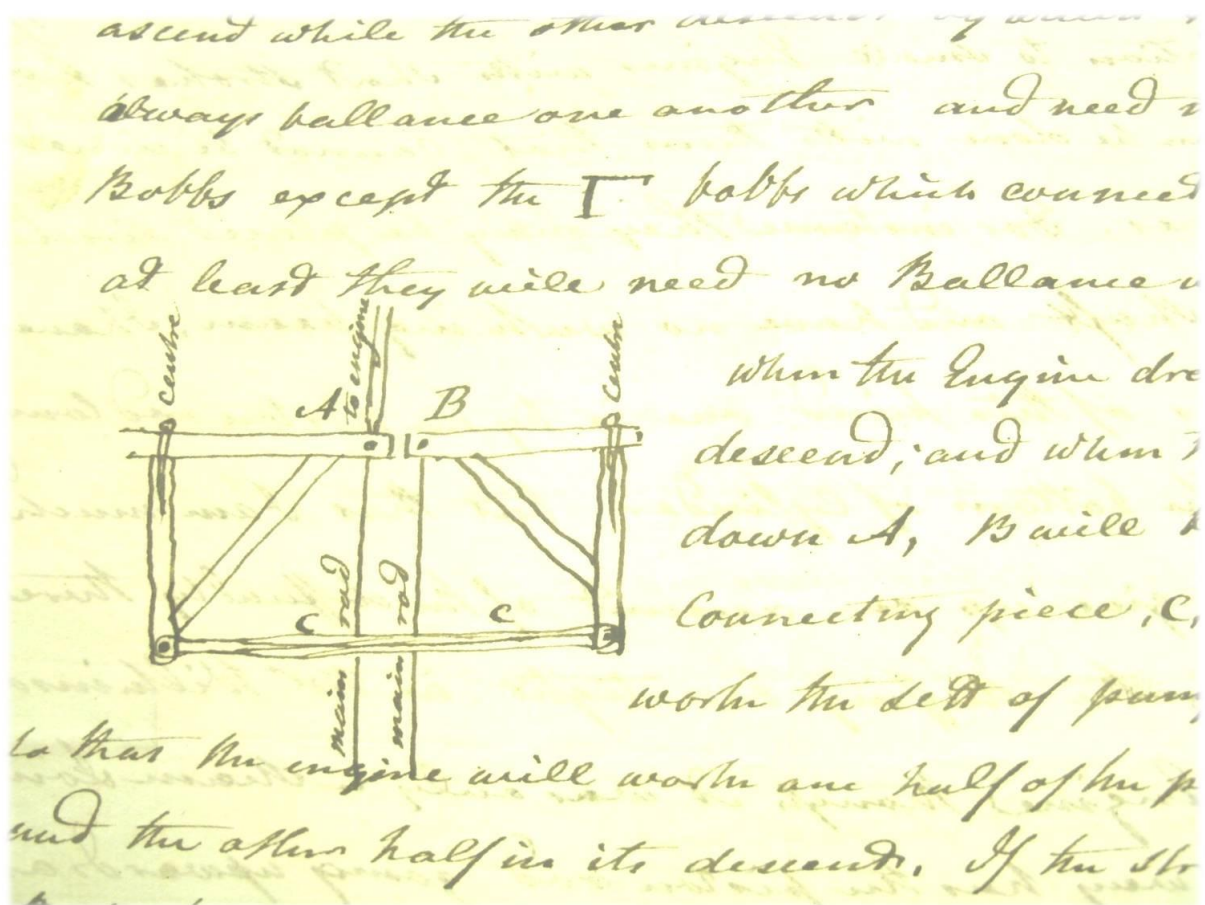 ascend while the other descends by which
always ballance one another and need
Bobbs except the Γ bobbs which connect
at least they will need no Ballance
centre
to engine
centre
A
B
when the Engine dra
descend; and when
down A, B will
main rod
main rod
C
C
Connecting piece, C,
work the sett of pum
main
main
so that the engine will work one half of the p
and the other half in its descent. If the str